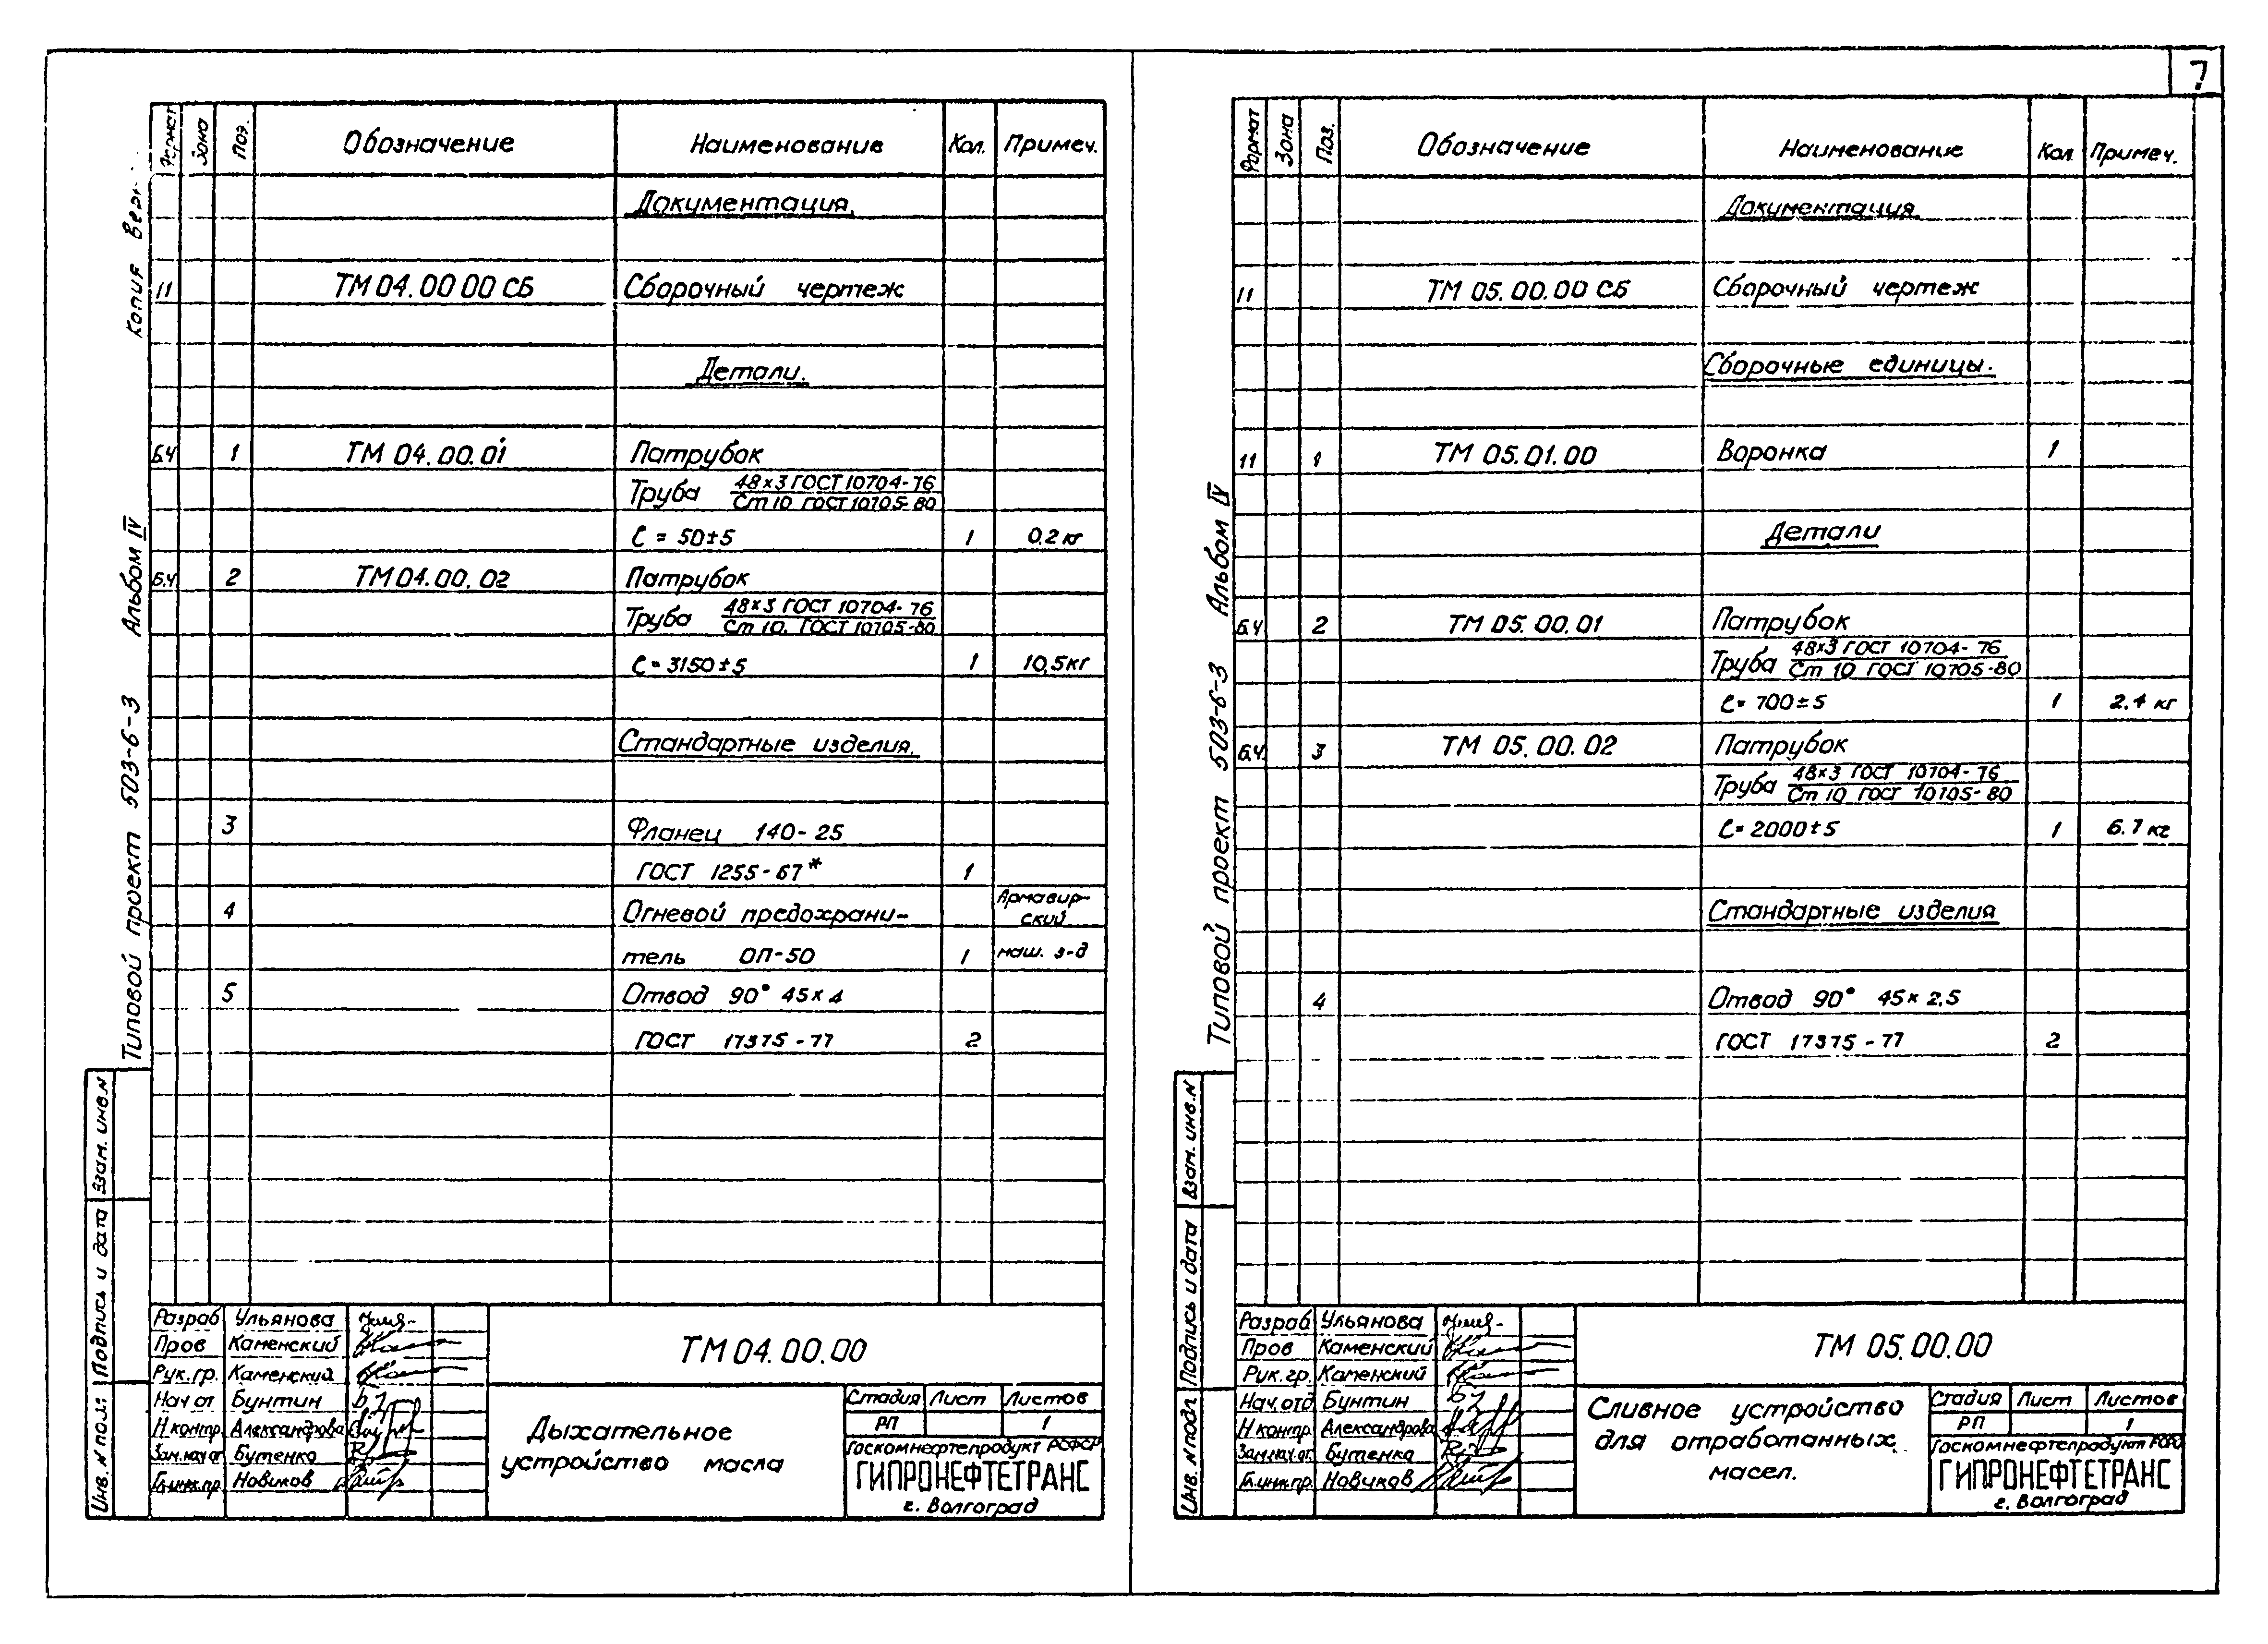 7
Формат Зона Поз. Обозначение Наименование Кол. Примеч.
Документация.
11 ТМ 04.00 00 СБ Сборочный чертеж
Детали.
Б.Ч 1 ТМ 04.00.01 Патрубок
Труба 48×3 ГОСТ 10704-76
Ст 10 ГОСТ 10705-80
ℓ = 50±5 1 0,2 кг
Б.Ч. 2 ТМ 04.00.02 Патрубок
Труба 48×3 ГОСТ 10704-76
Ст 10. ГОСТ 10705-80
ℓ = 3150±5 1 10,5кг
Стандартные изделия.
3 Фланец 140-25
ГОСТ 1255-67* 1
4 Огневой предохрани- Армавир-
ский
тель ОП-50 1 маш. з-д
5 Отвод 90° 45×4
ГОСТ 17375-77 2
Копия
Альбом IV
Типовой проект 503-6-3
Взам. инв.N
Подпись и дата
Инв. N подл.
Разраб Ульянова
Пров Каменский
Рук.гр. Каменский
Нач от Бунтин
Н контр. Александрова
Зам.нач от Бутенко
Гл.инж.пр. Новиков
ТМ 04.00.00
Дыхательное
устройство масла
Стадия Лист Листов
РП 1
Госкомнефтепродукт РСФСР
ГИПРОНЕФТЕТРАНС
г. Волгоград
Формат Зона Поз. Обозначение Наименование Кол Примеч.
Документация
11 ТМ 05.00.00 СБ Сборочный чертеж
Сборочные единицы.
11 1 ТМ 05.01.00 Воронка 1
Детали
Б.Ч 2 ТМ 05.00.01 Патрубок
Труба 48×3 ГОСТ 10704-76
Ст 10 ГОСТ 10705-80
ℓ= 700±5 1 2.4 кг
Б.Ч. 3 ТМ 05.00.02 Патрубок
Труба 48×3 ГОСТ 10704-76
Ст 10 ГОСТ 10705-80
ℓ= 2000±5 1 6.7 кг
Стандартные изделия
4 Отвод 90° 45×2,5
ГОСТ 17375-77 2
Альбом IV
Типовой проект 503-6-3
Взам. инв.N
Подпись и дата
Инв. N подл
Разраб Ульянова
Пров Каменский
Рук.гр. Каменский
Нач.отд Бунтин
Н контр. Александрова
Зам.нач.от. Бутенко
Гл.инж.пр. Новиков
ТМ 05.00.00
Сливное устройство
для отработанных
масел.
Стадия Лист Листов
РП 1
Госкомнефтепродукт РСФСР
ГИПРОНЕФТЕТРАНС
г. Волгоград